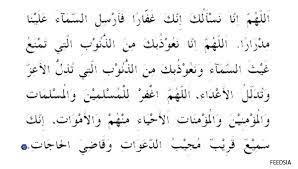 اَللّٰهُمَّ اِنَّا نَسْأَلُكَ اِنَّكَ غَفَّارًا فَأَرْسِلِ السَّمَآءَ عَلَيْنَا
مِدْرَارًا. اَللّٰهُمَّ اِنَّا نَعُوْذُبِكَ مِنَ الذُّنُوْبِ الَّتِي تَمْنَعُ
غَيْثَ السَّمَآءِ وَنَعُوْذُبِكَ مِنَ الذُّنُوْبِ الَّتِي تُذِلُّ الْأَعِزَّ
وَتُذَلِّلُ الْأَعْدَاءَ، اَللّٰهُمَّ اغْفِرْ لِلْمُسْلِمِيْنَ وَالْمُسْلِمَاتِ
وَالْمُؤْمِنِيْنَ وَالْمُؤْمِنَاتِ الْأَحْيَاءِ مِنْهُمْ وَالْأَمْوَاتِ، اِنَّكَ
سَمِيْعٌ قَرِيْبٌ مُجِيْبُ الدَّعَوَاتِ وَقَاضِي الْحَاجَاتِ.
FEEDSIA